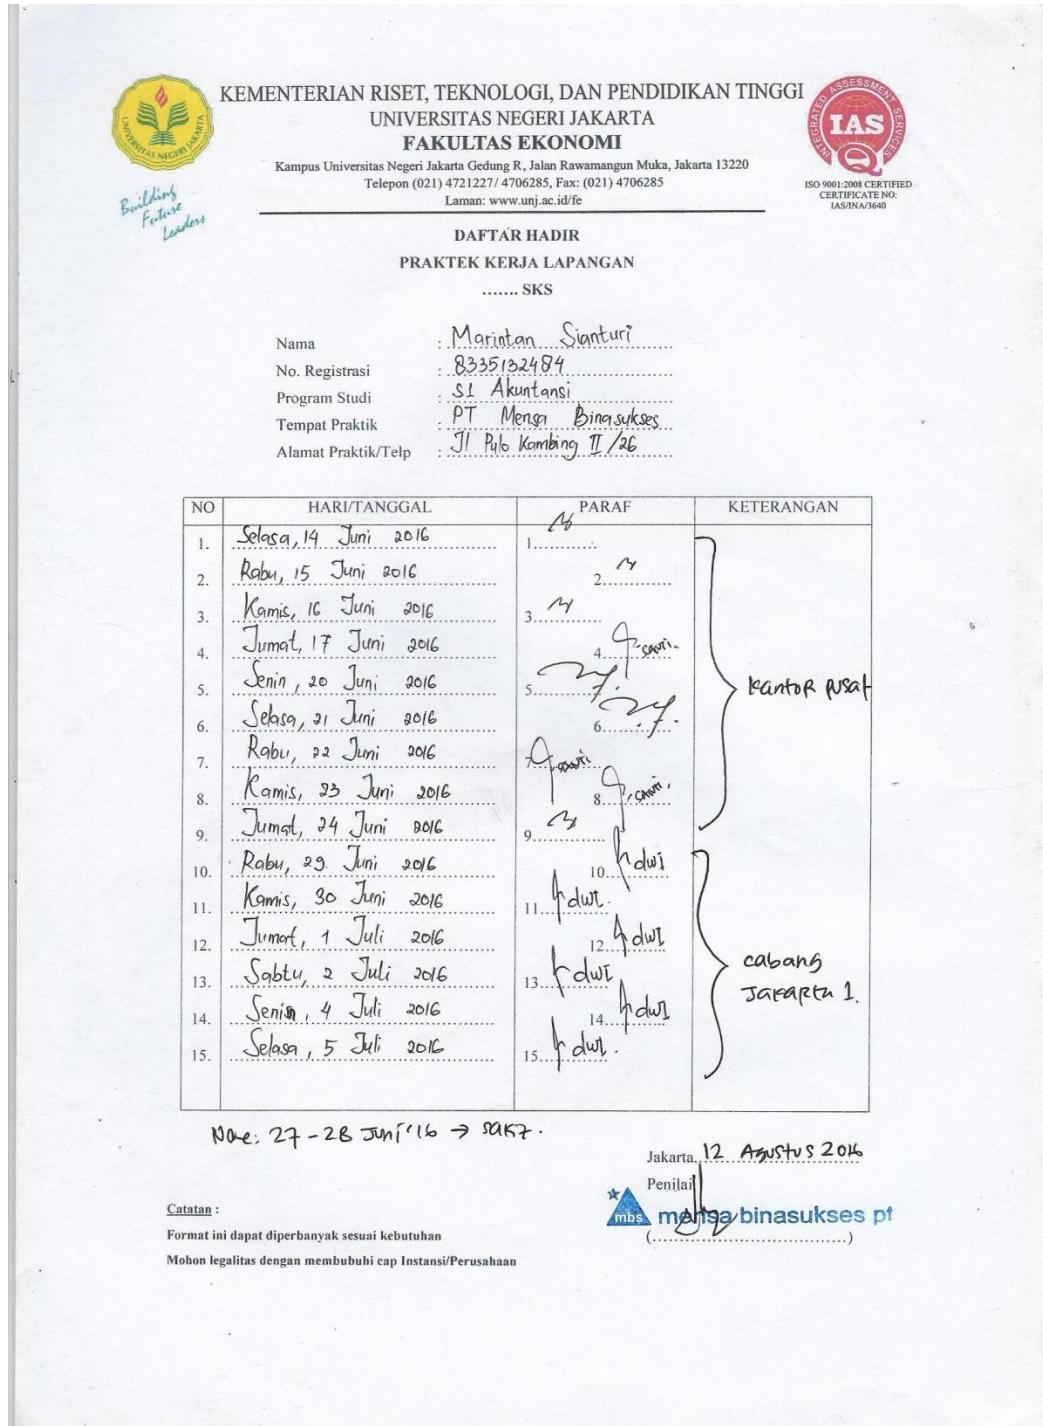 KEMENTERIAN RISET, TEKNOLOGI, DAN PENDIDIKAN TINGGI
UNIVERSITAS NEGERI JAKARTA
FAKULTAS EKONOMI
Kampus Universitas Negeri Jakarta Gedung R, Jalan Rawamangun Muka, Jakarta 13220
Telepon (021) 4721227/ 4706285, Fax: (021) 4706285
Laman: www.unj.ac.id/fe
UNIVERSITAS NEGERI JAKARTA
Building
Future
Leaders
INTEGRATED ASSESSMENT SERVICES
IAS
ISO 9001:2008 CERTIFIED
CERTIFICATE NO:
IAS/INA/3640
DAFTAR HADIR
PRAKTEK KERJA LAPANGAN
....... SKS
Nama : Marintan Sianturi
No. Registrasi : 8335132484
Program Studi : S1 Akuntansi
Tempat Praktik : PT Mensa Binasukses
Alamat Praktik/Telp : Jl Pulo Kambing II /26
NO HARI/TANGGAL PARAF KETERANGAN
1. Selasa, 14 Juni 2016 1.
2. Rabu, 15 Juni 2016 2.
3. Kamis, 16 Juni 2016 3.
4. Jumat, 17 Juni 2016 4.
5. Senin, 20 Juni 2016 5. kantor pusat
6. Selasa, 21 Juni 2016 6.
7. Rabu, 22 Juni 2016
8. Kamis, 23 Juni 2016 8.
9. Jumat, 24 Juni 2016 9.
10. Rabu, 29 Juni 2016 10. dwi
11. Kamis, 30 Juni 2016 11. dwi.
12. Jumat, 1 Juli 2016 12. dwi
13. Sabtu, 2 Juli 2016 13. dwi cabang
Jakarta 1.
14. Senin, 4 Juli 2016 14. dwi
15. Selasa, 5 Juli 2016 15. dwi.
Note: 27-28 Juni '16 → sakit.
Jakarta, 12 Agustus 2016
Penilai
mbs mensa binasukses pt
(......................................)
Catatan :
Format ini dapat diperbanyak sesuai kebutuhan
Mohon legalitas dengan membubuhi cap Instansi/Perusahaan